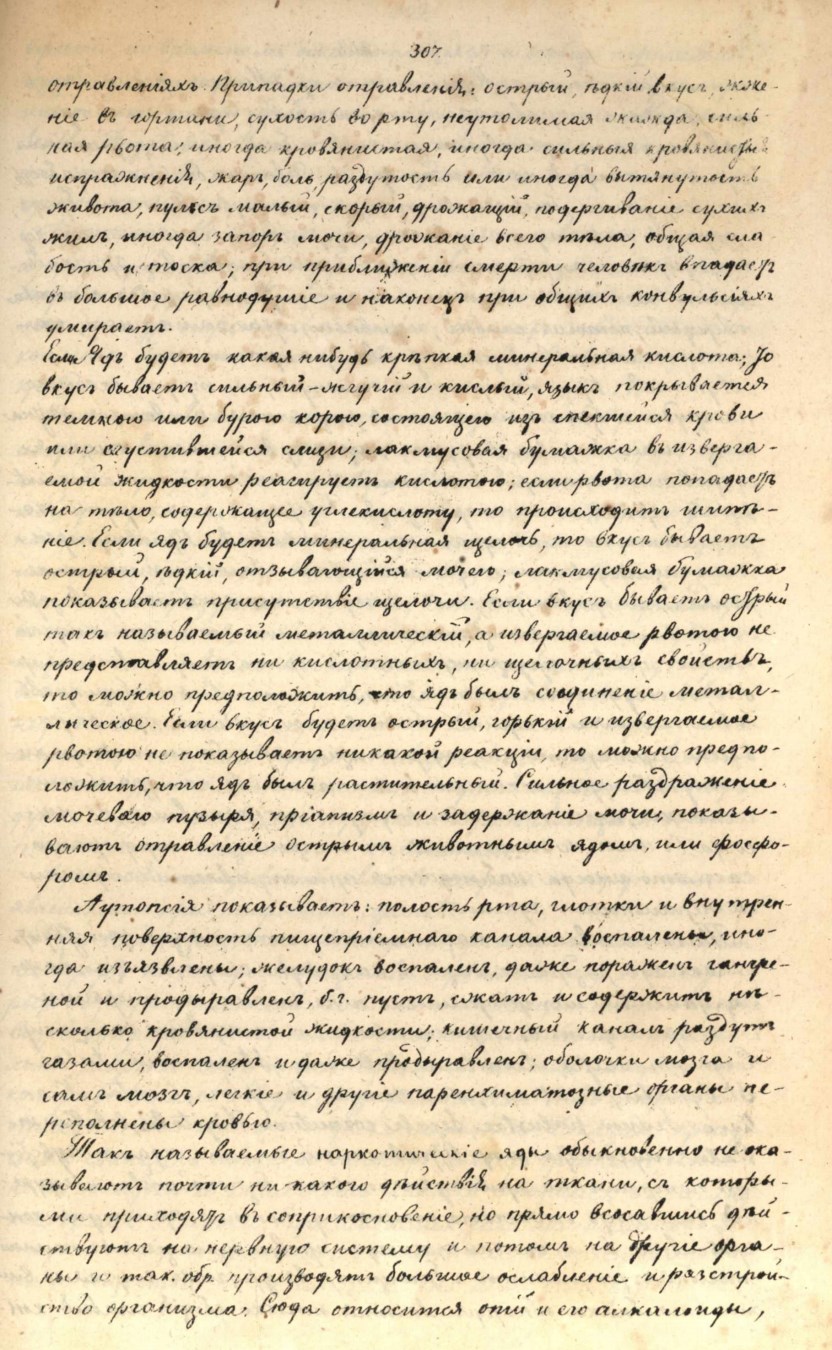 307
отравленіяхъ. Припадки отравленія: острый, ѣдкій вкусъ, жже-
ніе въ гортани, сухость во рту, неутолимая жажда, силь-
ная рвота, иногда кровянистая, иногда сильныя кровянистыя
испражненія, жаръ, боль, раздутость или иногда вытянутость
живота, пульсъ малый, скорый, дрожащій, подергиваніе сухихъ
жилъ, иногда запоръ мочи, дрожаніе всего тѣла, общая сла
бость и тоска; при приближеніи смерти человѣкъ впадаетъ
въ большое равнодушіе и наконецъ при общихъ конвульсіяхъ
умираетъ.
Если Ядъ будетъ какая нибудь крѣпкая минеральная кислота; То
вкусъ бываетъ сильный-жгучій и кислый, языкъ покрывается
темною или бурою корою, состоящею изъ спекшейся крови
или сгустившейся слизи; лакмусовая бумажка въ изверга-
емой жидкости реагируетъ кислотою; если рвота попадаетъ
на тѣло, содержащее углекислоту, то происходитъ шипѣ-
ніе. Если ядъ будетъ минеральная щелочь, то вкусъ бываетъ
острый, ѣдкій, отзывающійся мочею; лакмусовая бумажка
показываетъ присутствіе щелочи. Если вкусъ бываетъ острый
такъ называемый металлическій, а извергаемое рвотою не
представляетъ ни кислотныхъ, ни щелочныхъ свойствъ,
то можно предположить, что ядъ былъ соединеніе метал-
лическое. Если вкусъ будетъ острый, горькій и извергаемое
рвотою не показываетъ никакой реакціи, то можно предпо-
ложить, что ядъ былъ растительный. Сильное раздраженіе
мочеваго пузыря, пріапизмъ и задержаніе мочи, показы-
ваютъ отравленіе острымъ животнымъ ядомъ, или фосфо-
ромъ.
Аутопсія показываетъ: полость рта, глотки и внутрен-
няя поверхность пищепріемнаго канала воспалены, ино-
гда изъязвлены; желудокъ воспаленъ, даже пораженъ гангре-
ной и продыравленъ, б. ч. пустъ, сжатъ и содержитъ нѣ-
сколько кровянистой жидкости; кишечный каналъ раздутъ
газами, воспаленъ и даже продыравленъ; оболочки мозга и
самъ мозгъ, легкіе и другіе паренхиматозные органы пе-
реполнены кровью.
Такъ называемые наркотическіе яды обыкновенно не ока-
зываютъ почти ни какого дѣйствія на ткани, съ которы-
ми приходятъ въ соприкосновеніе, но прямо всосавшись дѣй-
ствуютъ на нервную систему и потомъ на другіе орга-
ны и так. обр. производятъ большое ослабленіе и разстрой-
ство организма. Сюда относится опій и его алкалоиды,